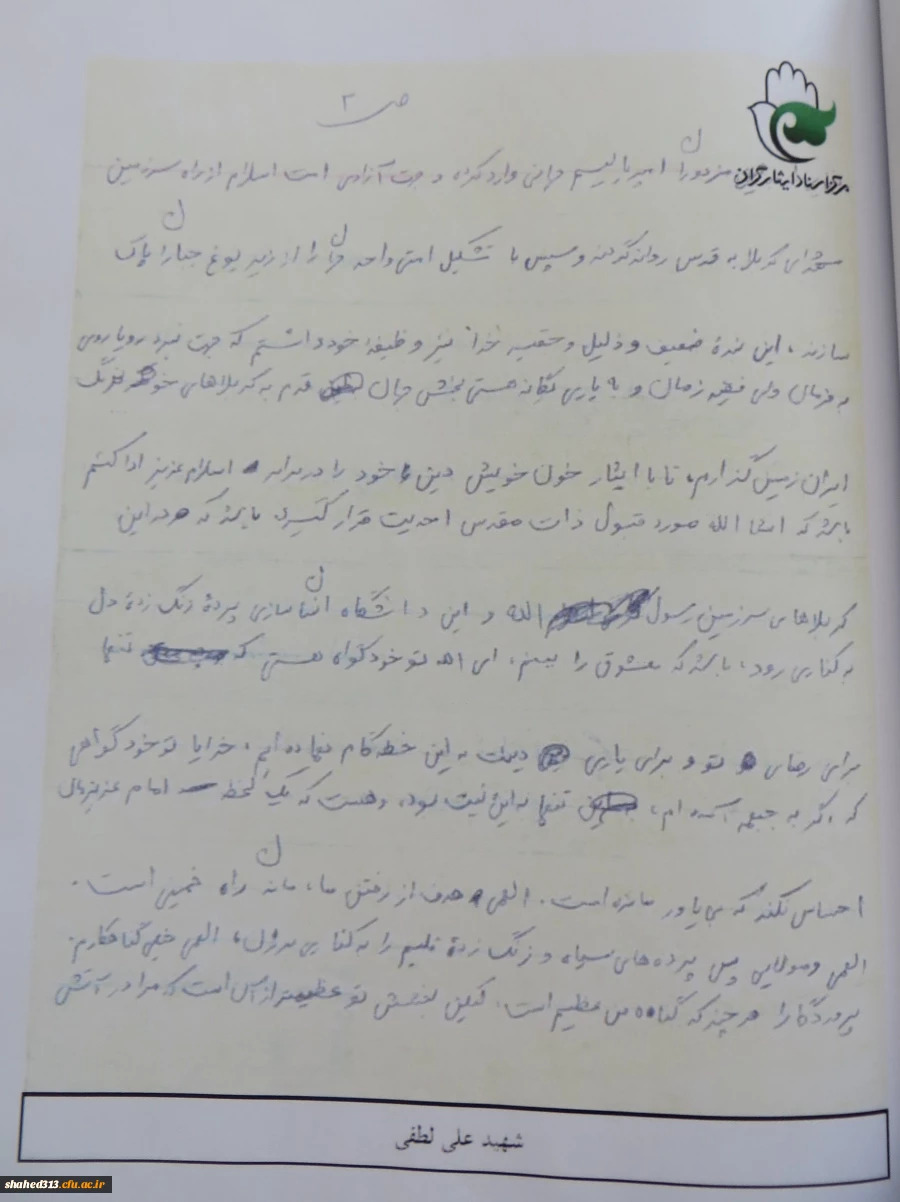 ص ۲
مرکز اسناد ایثارگران
مزدوران امپریالیسم جهانی وارد کرده و جهت آزادی است اسلام از راه سرزمین
کربلا به قدس روانه گردند و سپس با تشکیل امتی واحد جهان را از زیر یوغ جباران پاک
سازند، این بندهٔ ضعیف و ذلیل و حقیر خدا نیز وظیفهٔ خود دانستم که جهت نبرد رویاروی
به فرمان ولی فقیه زمان و به یاری یگانه هستی بخش جهان قدم به کربلاهای خونرنگ
ایران زمین گذارم، تا با ایثار خون خویش دین خود را در برابر اسلام عزیز ادا کنم
باشد که انشا الله مورد قبول ذات مقدس احدیت قرار گیرد. باشد که در این
کربلاهای سرزمین رسول الله و این دانشگاه انسانسازی پردهٔ زنگ زدهٔ دل
به کناری رود، باشد که معشوق را ببینم، ای الله تو خود گواه هستی که تنها
برای رضای تو و برای یاری دینت به این خطه گام نهاده‌ایم، خدایا تو خود گواهی
که اگر به جبهه آمده ام، تنها به این نیت بوده و هست که یک لحظه امام عزیزمان
احساس نکند که بی یاور مانده است. الهی هدف از رفتن ما، ماندن راه خمینی است.
الهی و مولایی پس پرده های سیاه و زنگ زدهٔ قلبم را به کناری بزن، الهی خیلی گناهکارم.
پروردگارا هر چند که گناه من عظیم است. لیکن بخشش تو عظیم‌تر از آن است که مرا در آتش
شهید علی لطفی
shahed313.cfu.ac.ir